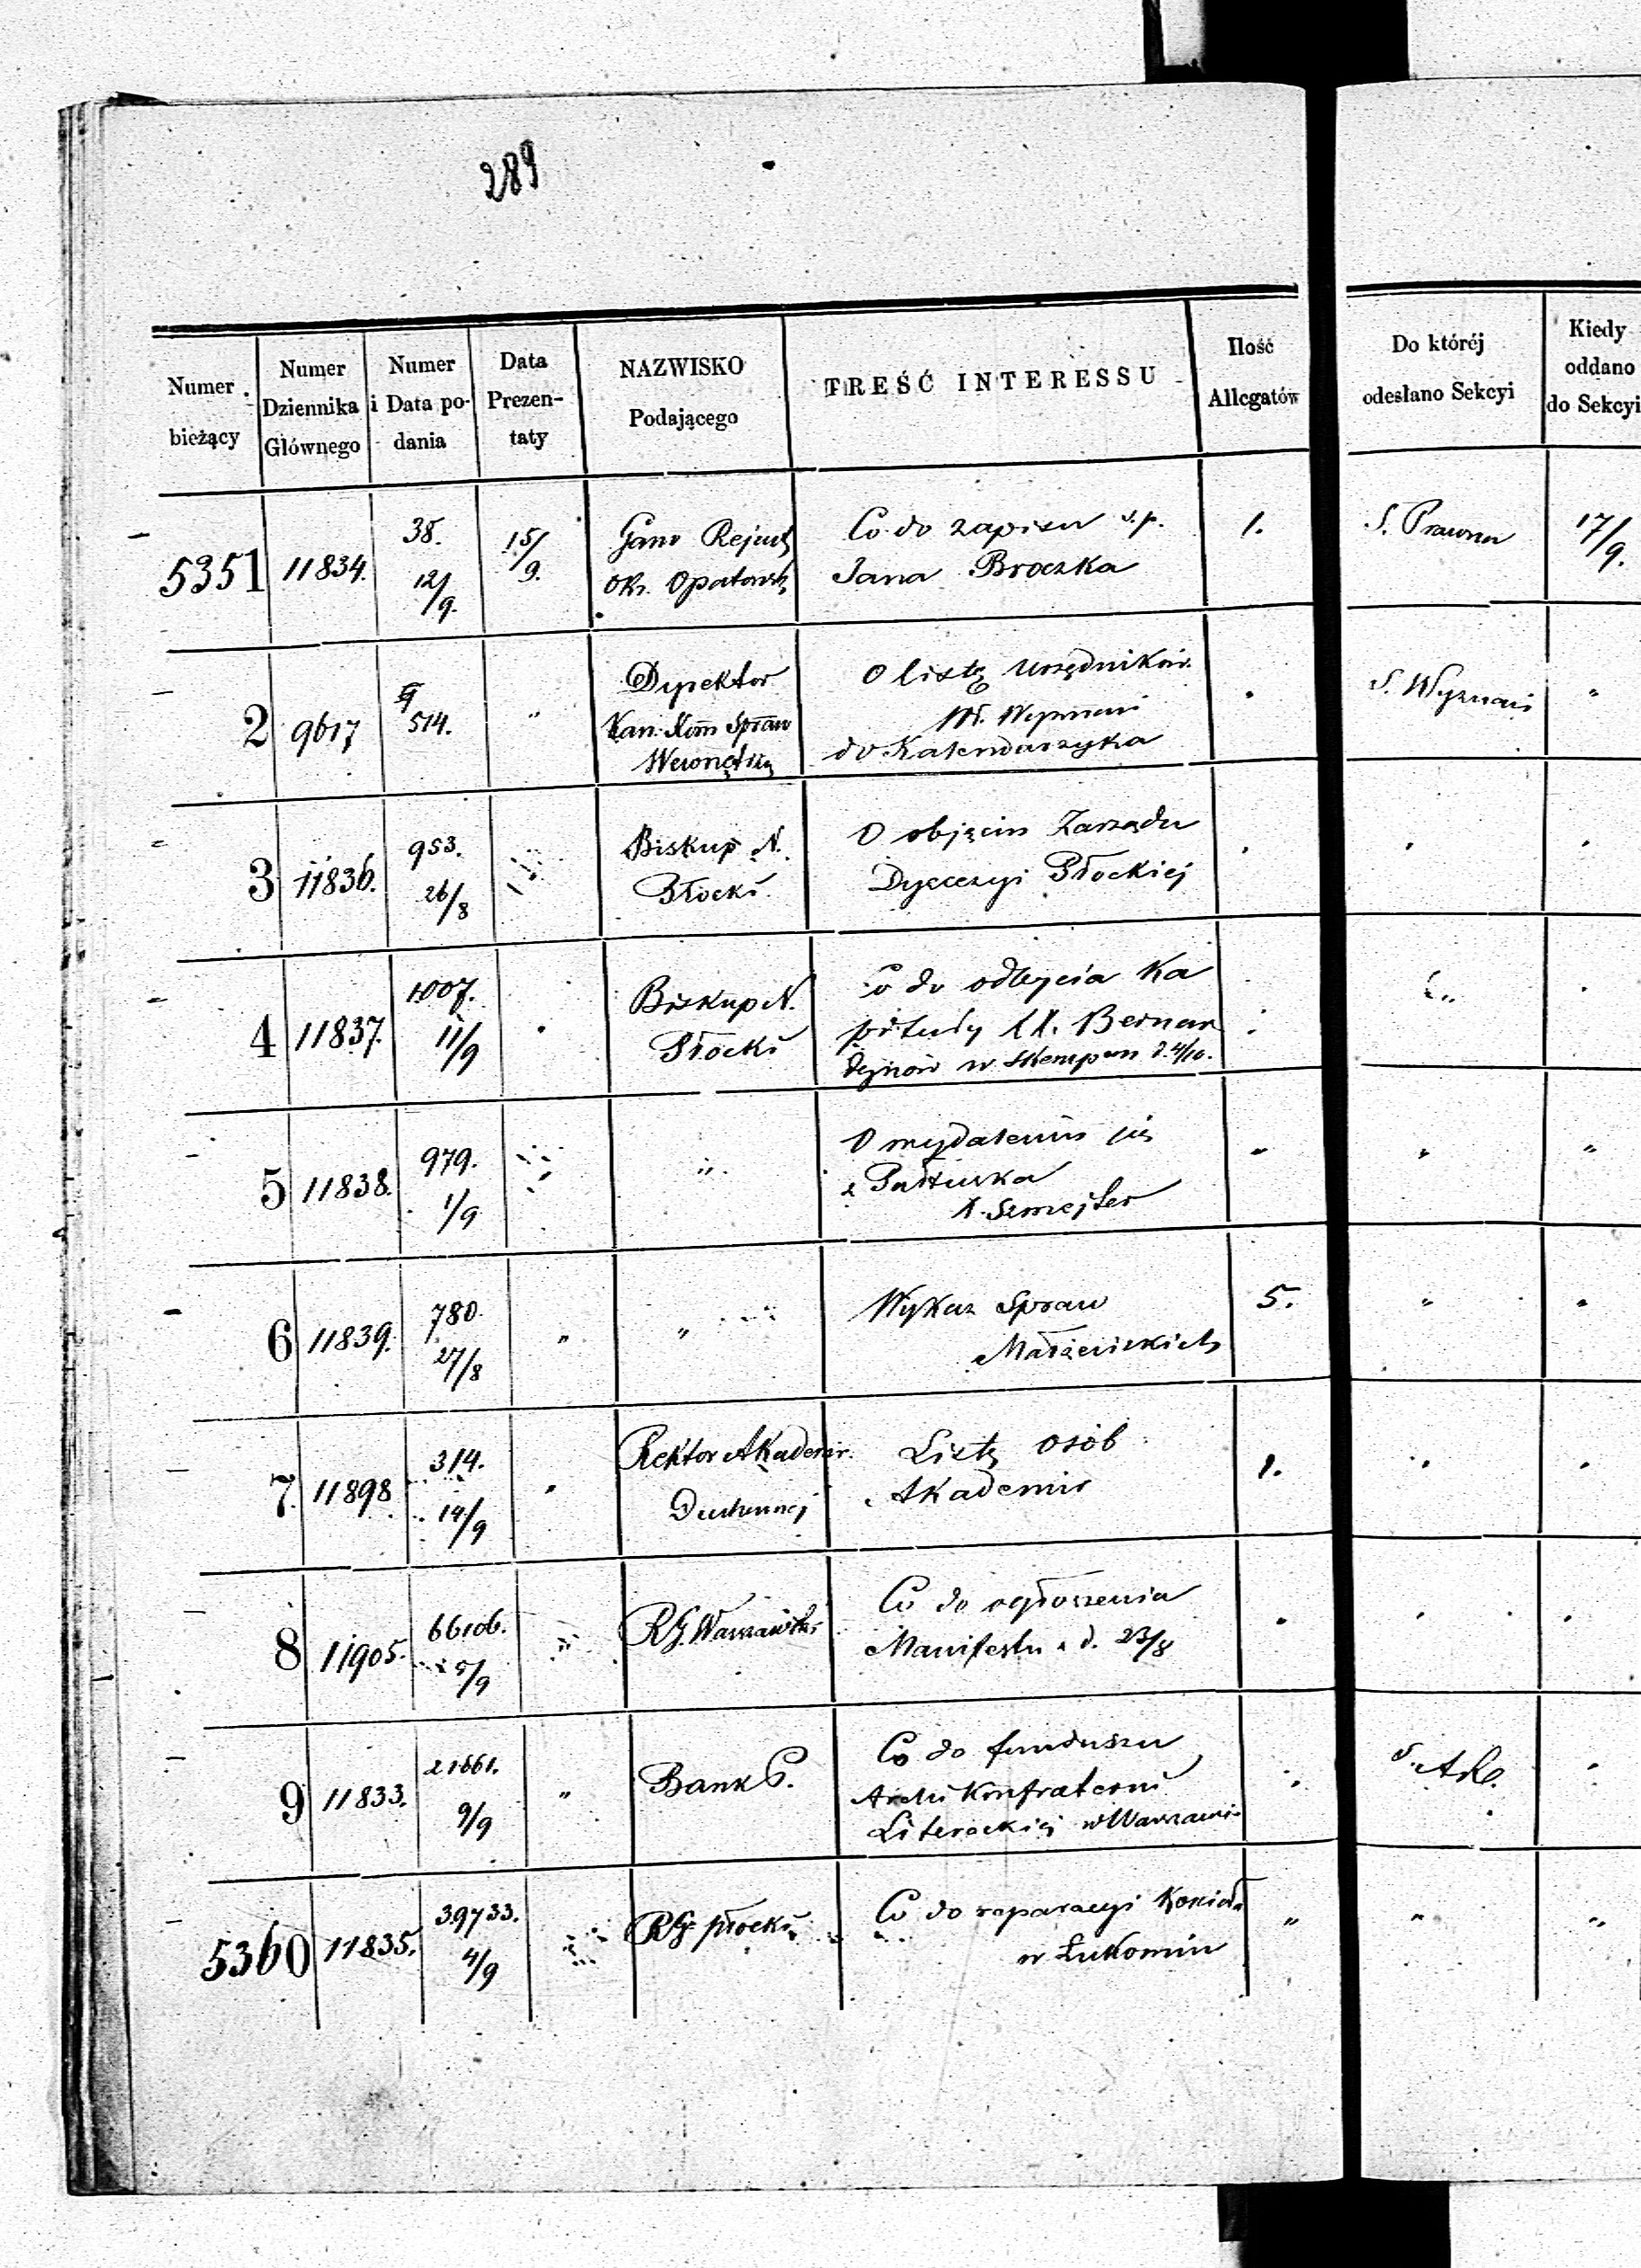 289
Numer bieżący | Numer Dziennika Głównego | Numer i Data podania | Data Prezentaty | NAZWISKO Podającego | TREŚĆ INTERESSU | Ilość Allegatów | Do któréj odesłano Sekcyi | Kiedy oddano do Sekcyi
5351 | 11834. | 38. 12/9. | 15/9. | Rejent Ok. Opatowsk | Co do zapisu ś.p. Jana Broczka | 1. | S. Prawna | 17/9.
2 | 9617 | 514. | " | Dyrektor Kan. Kom Spraw Wewnętrz | O listę Urzędników W. Wyznań do Kalendarzyka | " | S. Wyznań | "
3 | 11836. | 953. 26/8 | " | Biskup N. Płocki | O objęciu Zarządu Dyecezyi Płockiej | " | " | "
4 | 11837. | 1007. 11/9 | " | Biskup N. Płocki | Co do odbycia Kapituły XX. Bernardynów w Skempem d. 4/10. | " | " | "
5 | 11838. | 979. 1/9 | " | " | O wydaleniu się z Pułtuska X. Szmejter | " | " | "
6 | 11839. | 780. 27/8 | " | " | Wykaz Spraw Małżeńskich | 5. | " | "
7. | 11898 | 314. 14/9 | " | Rektor Akademii Duchownej | Listę osób Akademii | 1. | " | "
8 | 11905. | 66106. 5/9 | " | RG. Warszawski | Co do ogłoszenia Manifestu z d. 23/8 | " | " | "
9 | 11833. | 21661. 9/9 | " | Bank P. | Co do funduszu Archi Konfraterni Literackiej w Warszawie | " | S. | "
5360 | 11835. | 39733. 4/9 | " | RG. Płocki | Co do reparacyi Kościoła w Łukomiu | " | " | "